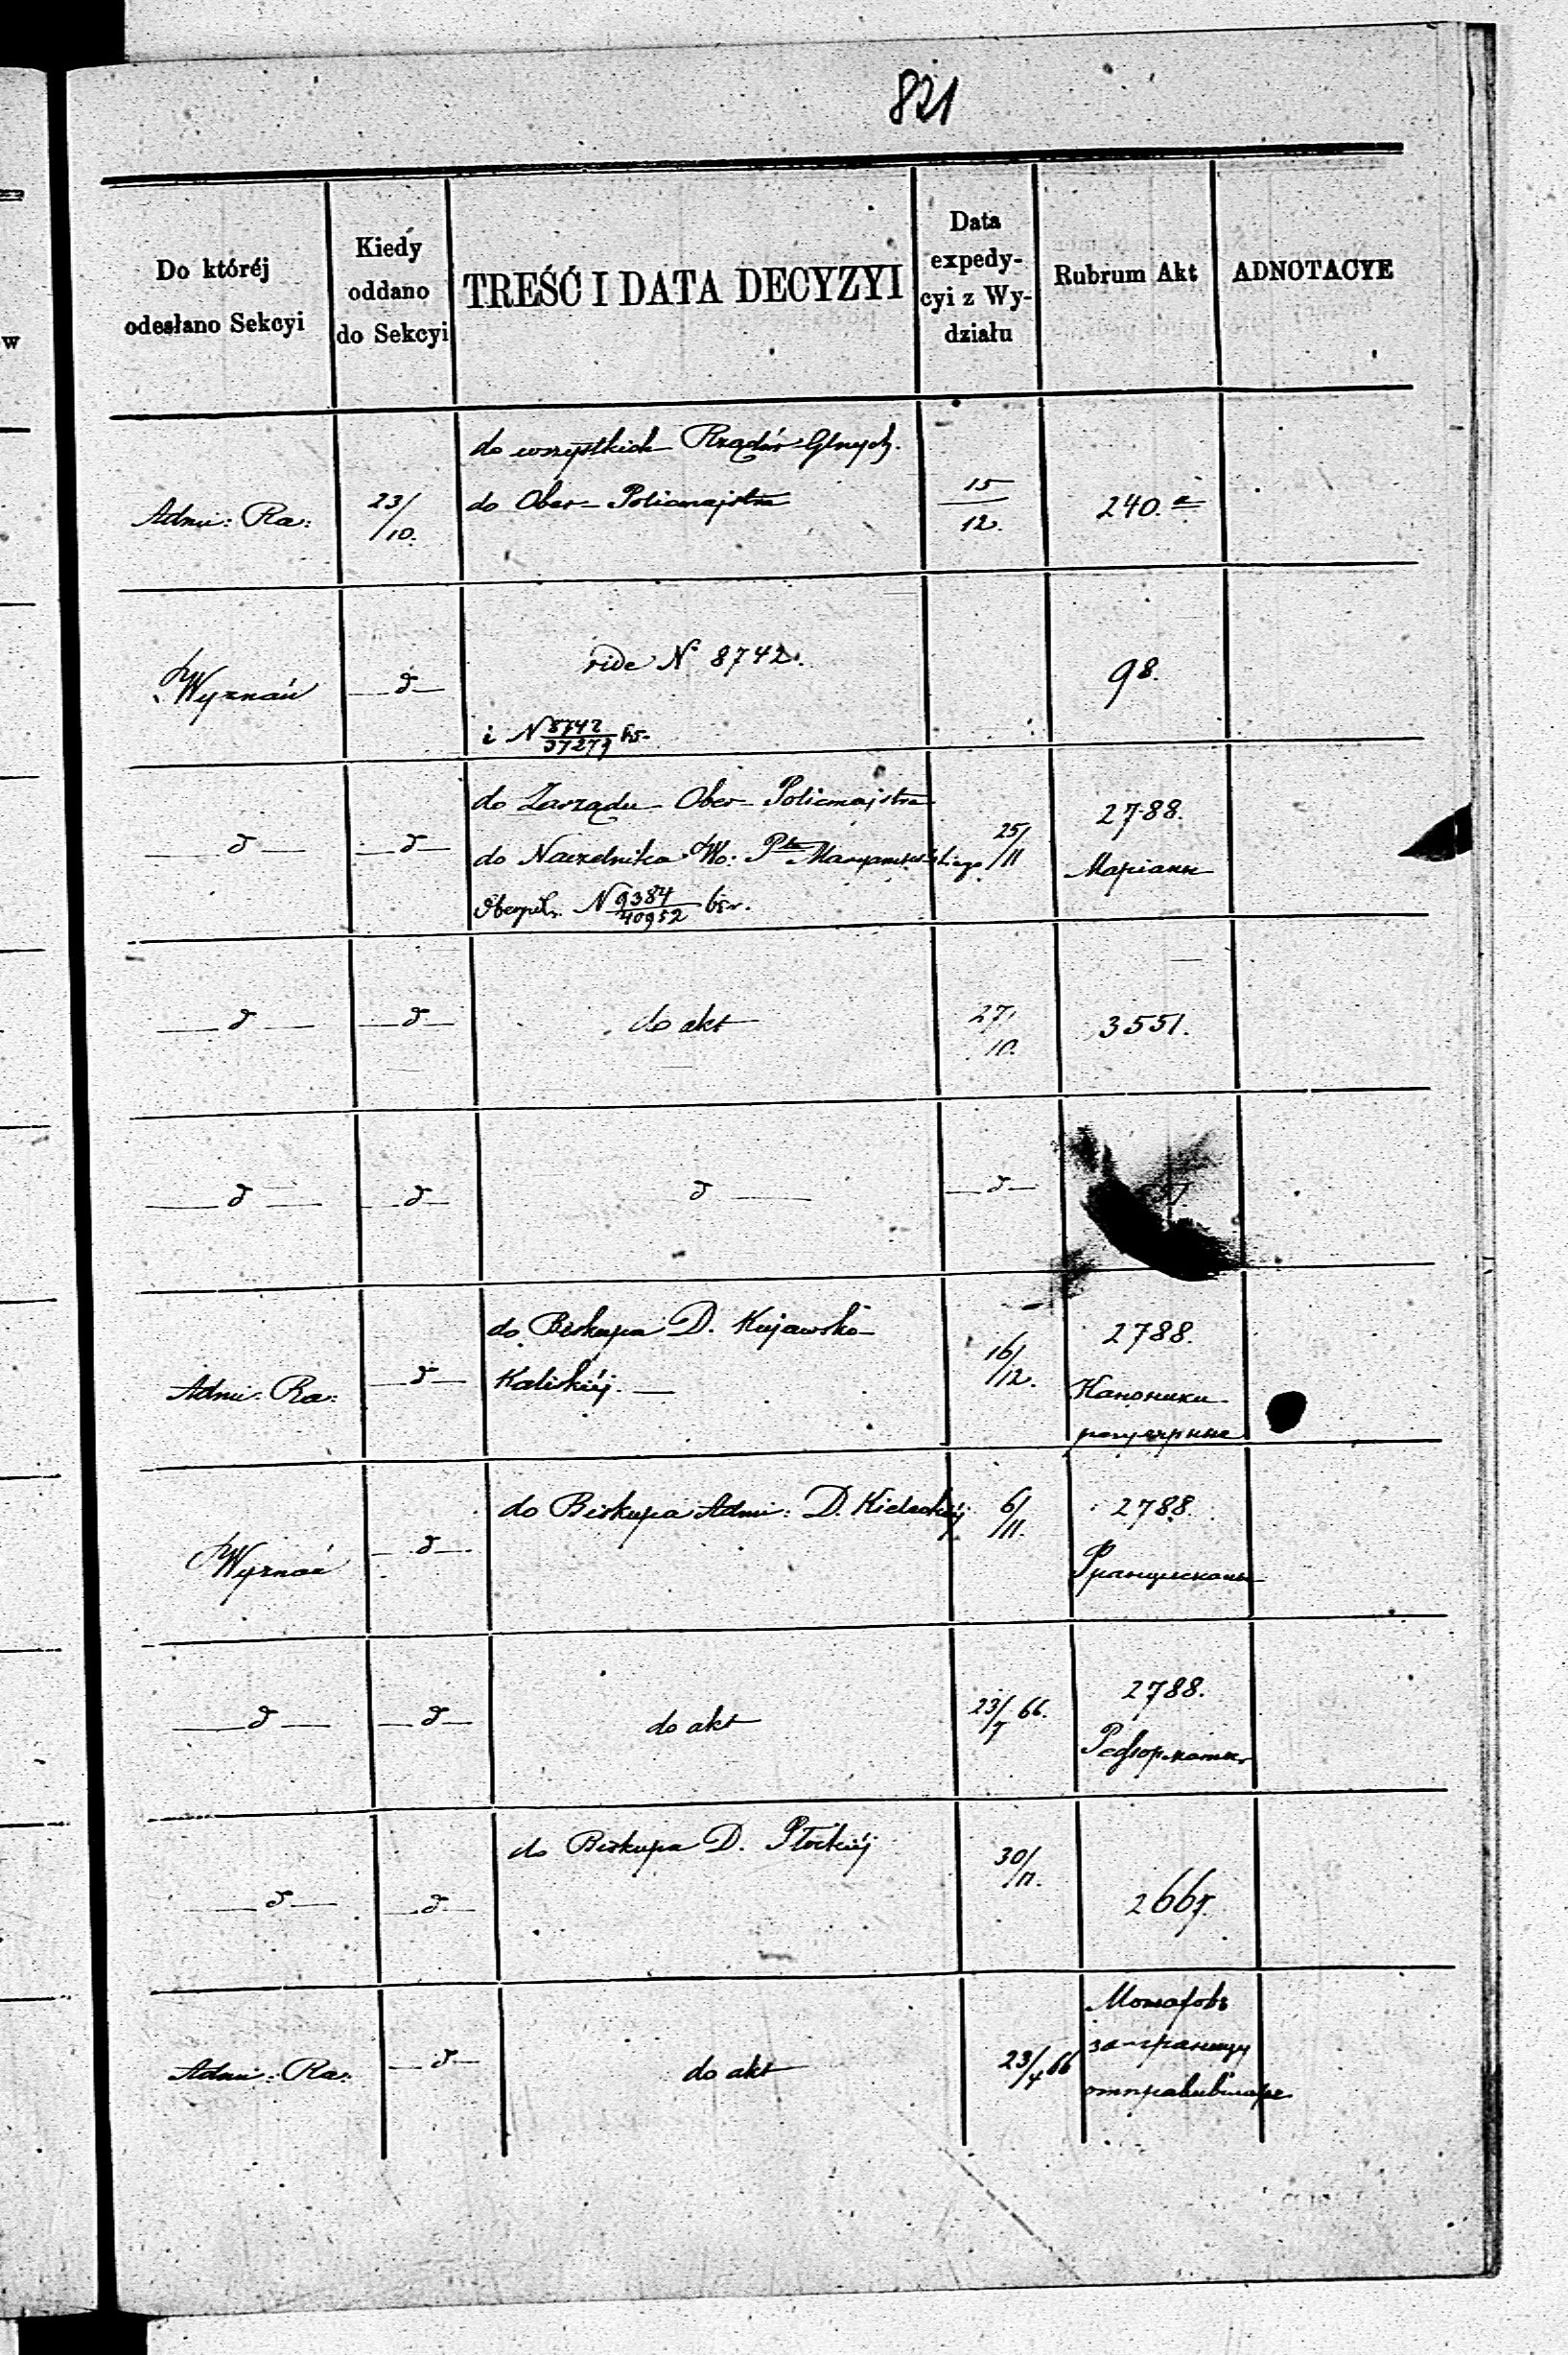 821
Do któréj
odesłano Sekcyi
Kiedy
oddano
do Sekcyi
TREŚĆ I DATA DECYZYI
Data
expedy-
cyi z Wy-
działu
Rubrum Akt
ADNOTACYE
w
do wszystkich Rządów Glnych.
do Ober-Policmajstra
Admi: Ra:
23/10.
15/12.
240.
Wyznań
d
vide N° 8742.
i N 8742/37279 65.
98.
d
d
do Zarządu Ober-Policmajstra
do Naczelnika Wo. Maryampolskiego
N 9384/40952 65.
25/11
2788.
Маріане
d
d
do akt
27/10.
3551.
d
d
d
d
Admi: Ra:
d
do Biskupa D. Kujawsko-
Kaliskiéj.
16/12.
2788.
Каноники
регулярные
Wyznań
d
do Biskupa Admi: D. Kieleckiéj
6/11.
2788.
Францискане
d
d
do akt
23/ 66.
2788.
Реформаты
d
d
do Biskupa D. Płockiéj
30/11.
Admi: Ra:
d
do akt
23/4 66
заграницу